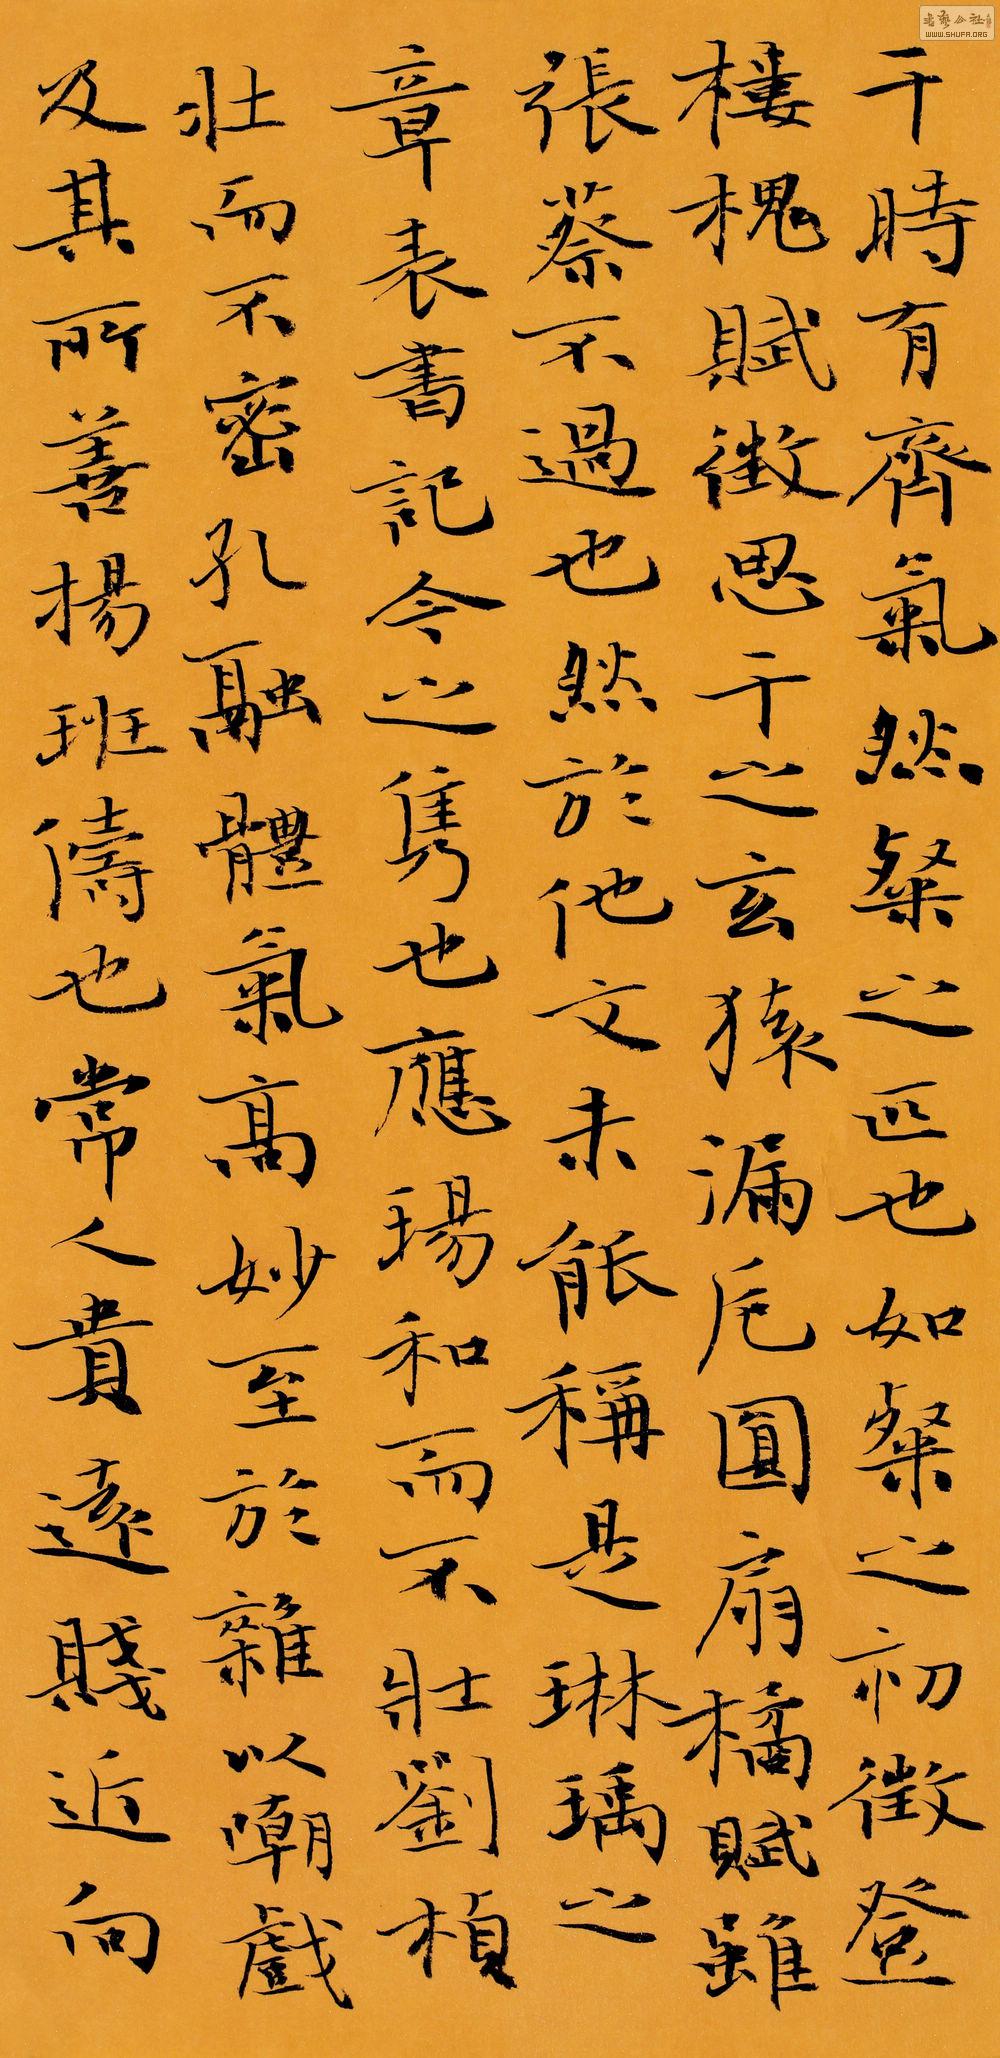 干時有齊氣然粲之匹也如粲之初徵登
樓槐賦徵思干之玄猿漏卮圓扇橘賦雖
張蔡不過也然於他文未能稱是琳瑀之
章表書記今之雋也應瑒和而不壯劉楨
壯而不密孔融體氣高妙至於雜以嘲戲
及其所善揚班儔也常人貴遠賤近向
書藝公社
WWW.SHUFA.ORG